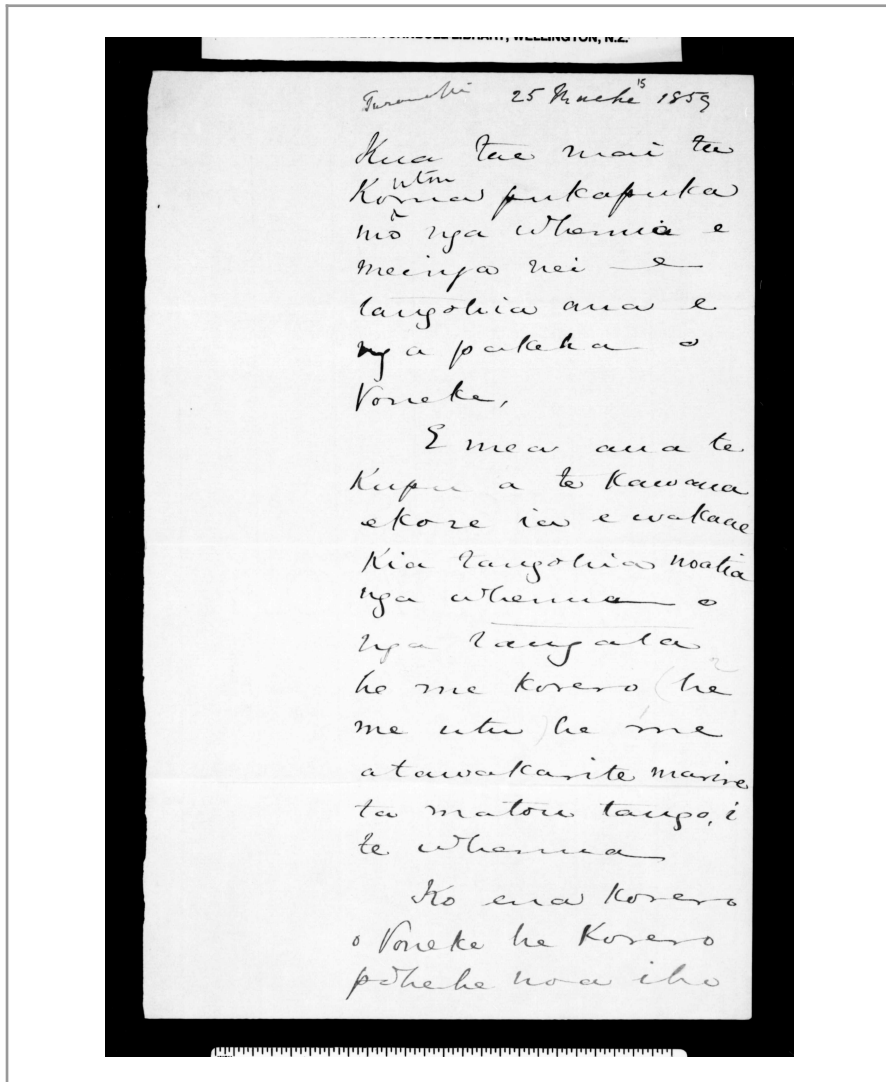 LIBRARY, WELLINGTON, N.Z.
Taranaki 25 Maehe 15 1859
Kua tae mai ta
utou
Korua pukapuka
mō nga whenua e
meinga nei e
tangohia ana e
nga pakeha o
Poneke,
E mea ana te
Kupu a te Kawana
ekore ia e wakaae
Kia tangohia noatia
nga whenua o
nga tangata
he me korero (he
me utu) he me
atawakarite marire
ta matou tango, i
te whenua
Ko ena korero
o Poneke he Korero
pōhehe noa iho